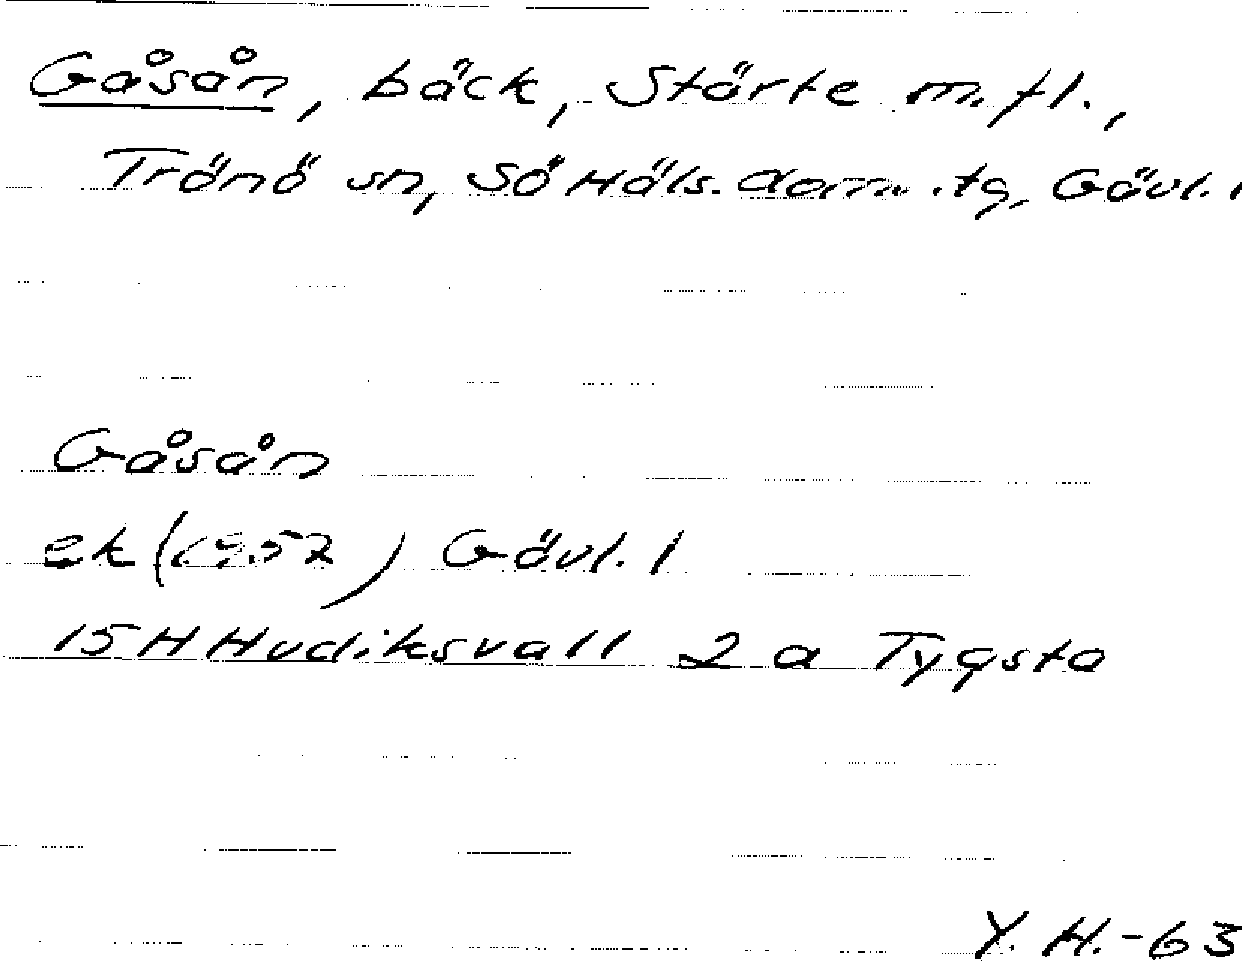 Gåsån, bäck, Stärte m.fl.,
Trönö sn, Sö Häls. doms.tg, Gävl. l
Gåsån
ek (1957) Gävl. l
15 H Hudiksvall 2 a Tygsta
Y. H. -63